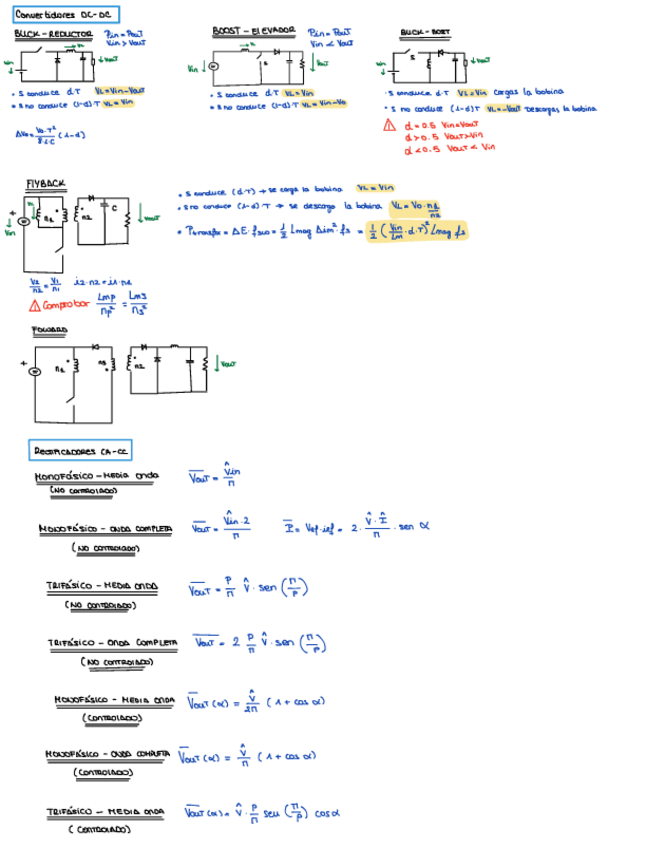 Convertidores DC-DC
BUCK - REDUCTOR Pin = Pout
Vin > Vout
Vin
Vout
• S conduce d·T VL = Vin - Vout
• S no conduce (1-d)·T VL = Vin
ΔVo = Vo·T² / 8·L·C (1-d)
BOOST - ELEVADOR Pin = Pout
Vin < Vout
Vin
S
Vout
• S conduce d·T VL = Vin
• S no conduce (1-d)·T VL = Vin - Vo
BUCK - BOST
Vin
S
Vout
• S conduce d·T VL > Vin Cargas la bobina
• S no conduce (1-d)T VL = -Vout Descargas la bobina
⚠ d = 0.5 Vin = Vout
d > 0.5 Vout > Vin
d < 0.5 Vout < Vin
FlYBACK
Vin
n1 n2 C
Vout
• S conduce (d·T) → se carga la bobina VL = Vin
• S no conduce (1-d)·T → se descarga la bobina VL = Vo· n1/n2
• Ptransfer = ΔE · fsw = 1/2 Lmag Δim² · fs = 1/2 (Vin/Lm · d·T)² Lmag fs
V2/n2 = V1/n1 i2·n2 = i1·n1
⚠ Comprobar Lmp/np² = Lms/ns²
FOWARD
n1 n3 n2
Vout
Rectificadores CA-CC
MONOFÁSICO - MEDIA ONDA V̄out = V̂in / π
(NO CONTROLADO)
MONOFÁSICO - ONDA COMPLETA V̄out = V̂in·2 / π Ī = Vef·ief = 2· V̂·Î / π · sen α
(NO CONTROLADO)
TRIFÁSICO - MEDIA ONDA V̄out = P/π V̂ · sen (π/P)
(NO CONTROLADO)
TRIFÁSICO - ONDA COMPLETA V̄out = 2 P/π V̂ · sen (π/P)
(NO CONTROLADO)
MONOFÁSICO - MEDIA ONDA V̄out (α) = V̂/2π (1 + cos α)
(CONTROLADO)
MONOFÁSICO - ONDA COMPLETA V̄out (α) = V̂/π (1 + cos α)
(CONTROLADO)
TRIFÁSICO - MEDIA ONDA V̄out (α) = V̂ · P/π sen (π/P) cos α
(CONTROLADO)